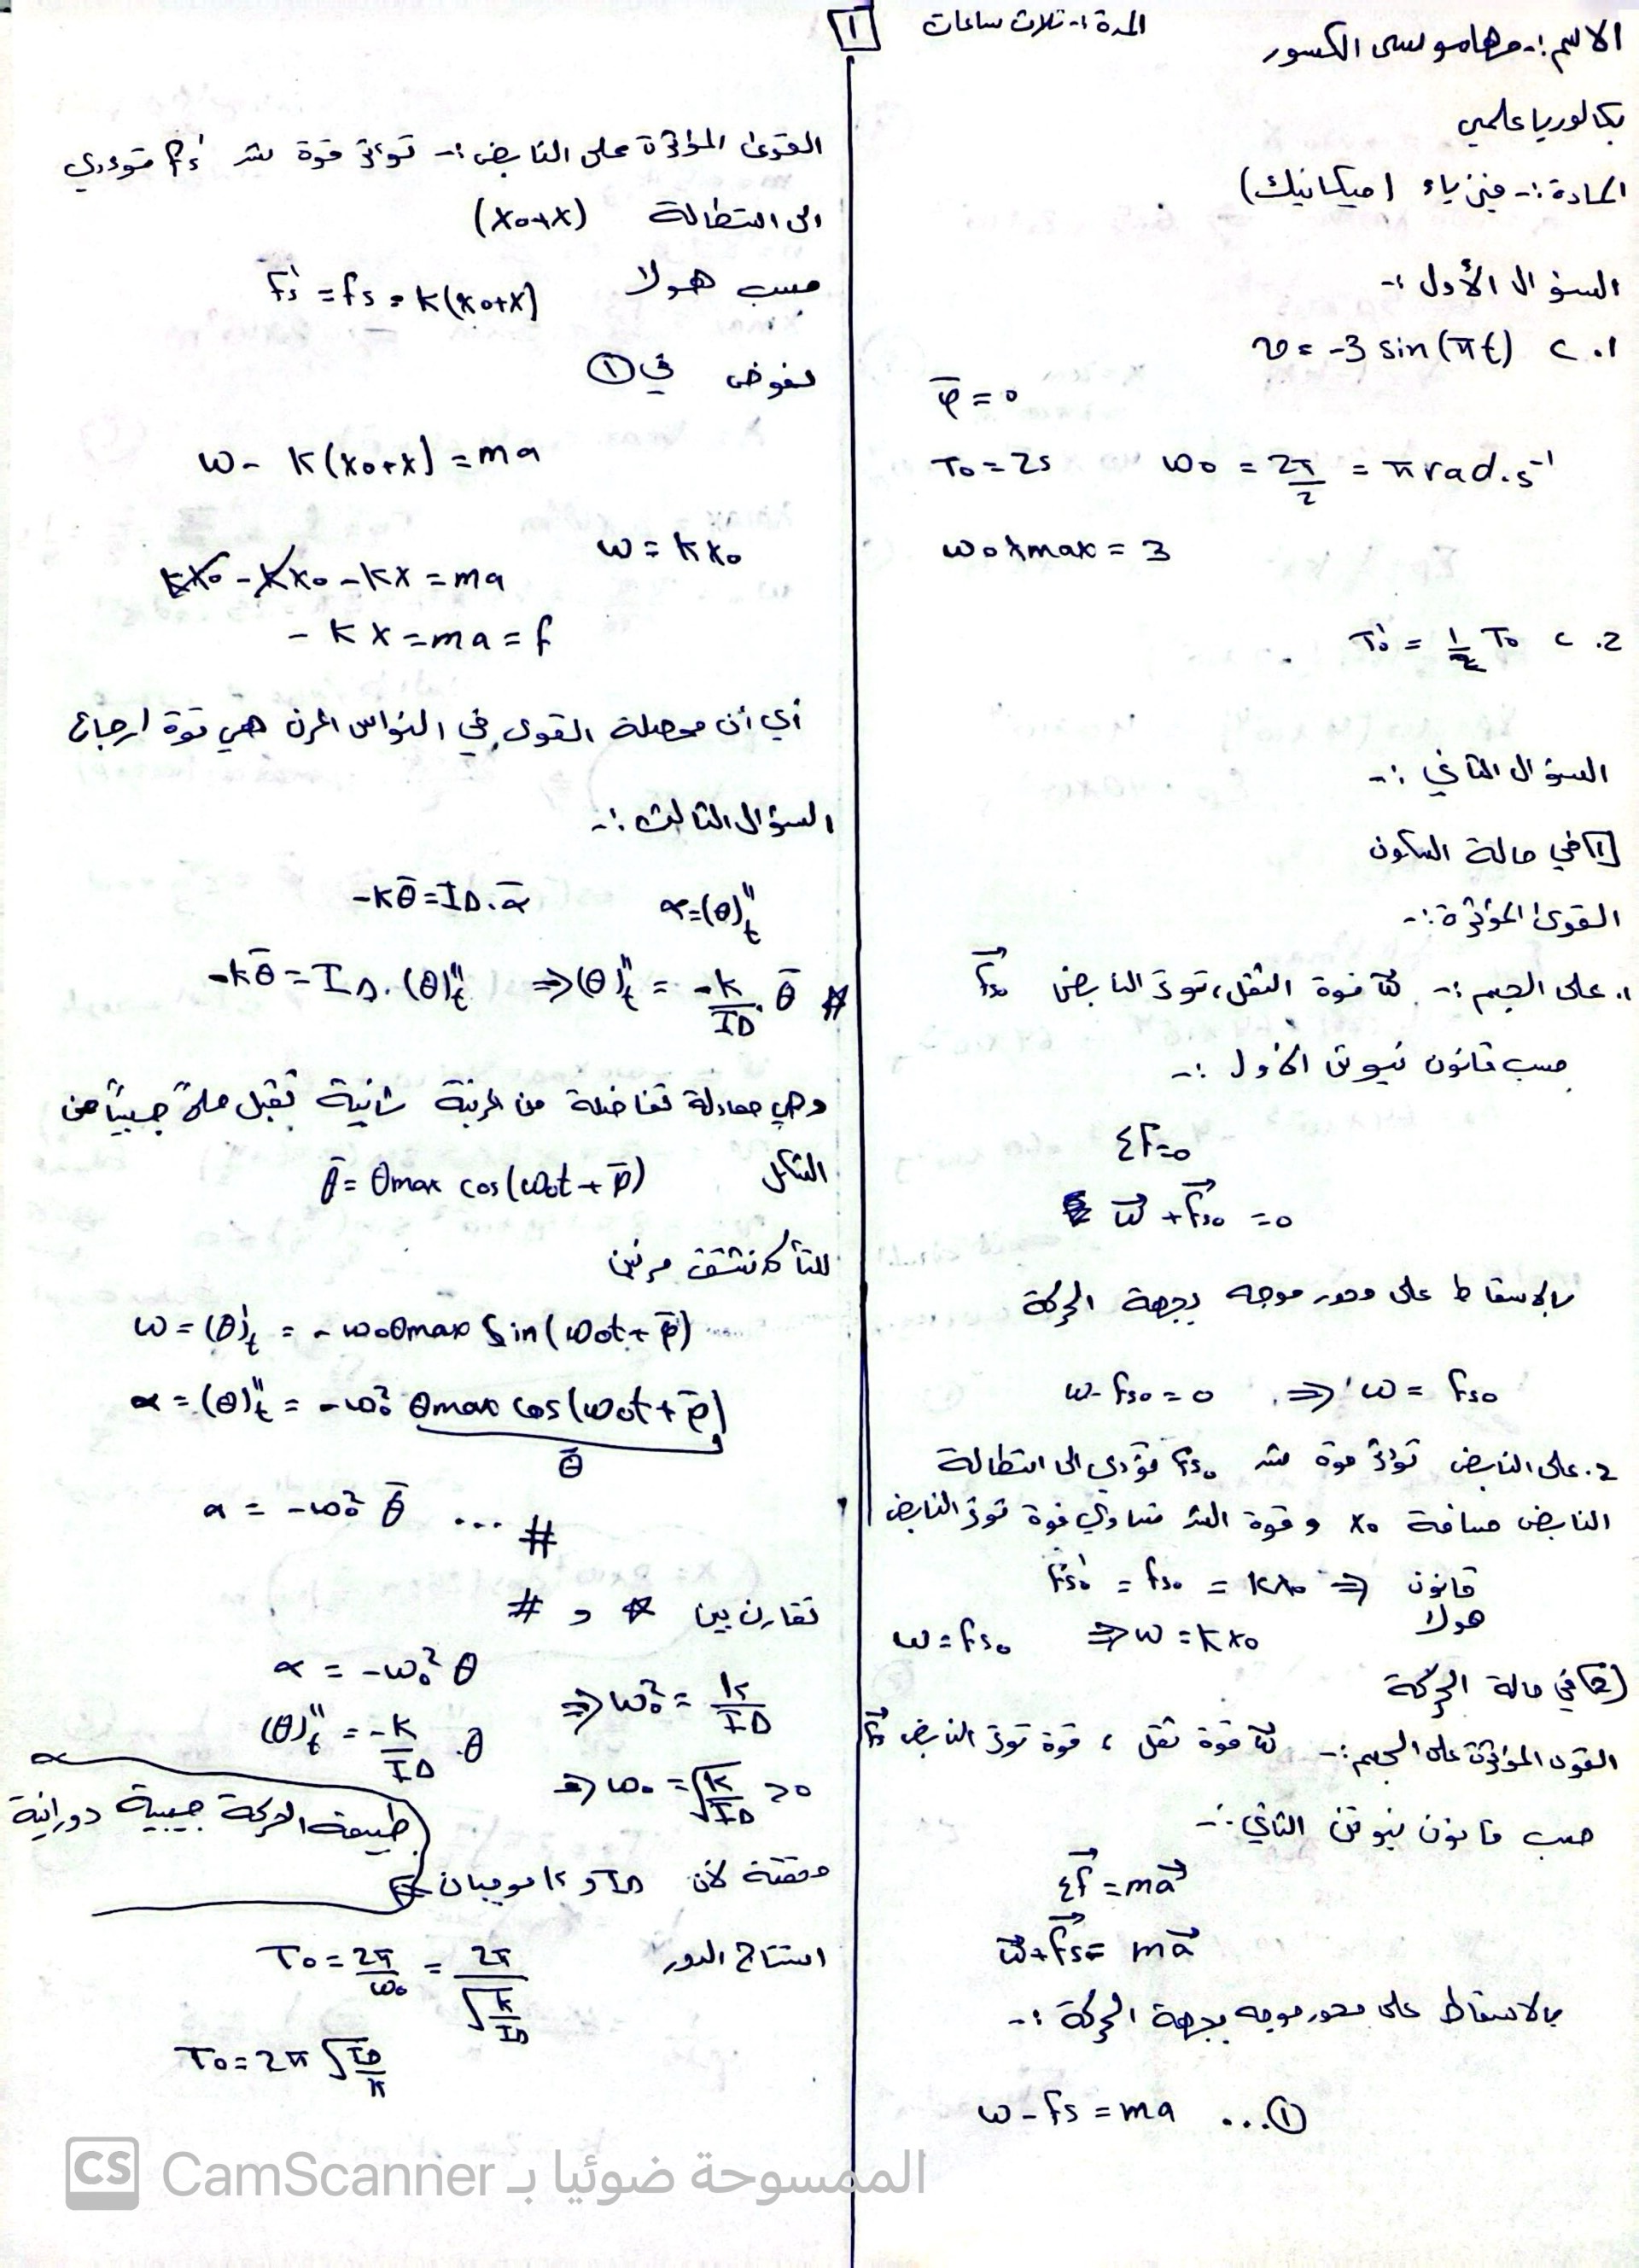 الاسم :- مها موسى الكسور
المدة :- ثلاث ساعات
1
بكالوريا علمي
المادة :- فيزياء (ميكانيك)
السؤال الأول :-
1. c v = -3 sin(πt)
φ̄ = 0
T0 = 2s w0 = 2π/2 = π rad.s⁻¹
w0 Xmax = 3
2. c T0' = 1/2 T0
السؤال الثاني :-
1) في حالة السكون
القوى المؤثرة :-
1. على الجسم :- قوة الثقل، توتر النابض Fs0
حسب قانون نيوتن الأول :-
ΣF = 0
w + Fs0 = 0
بالاسقاط على محور موجه بجهة الحركة
w - Fs0 = 0 ⇒ w = Fs0
2. على النابض تؤثر قوة شد Fs0' تؤدي الى استطالة
النابض مسافة x0 و قوة الشد تساوي قوة توتر النابض
قانون هولا ⇒ Fs0' = Fs0 = kx0
w = Fs0 ⇒ w = kx0
2) في حالة الحركة
القوى المؤثرة على الجسم :- قوة ثقل، قوة توتر النابض Fs
حسب قانون نيوتن الثاني :-
ΣF = ma
w + Fs = ma
بالاسقاط على محور موجه بجهة الحركة :-
w - Fs = ma ...①
القوى المؤثرة على النابض :- تؤثر قوة شد Fs' تؤدي
الى استطالة (x0+x)
حسب هولا Fs' = Fs = k(x0+x)
نعوض في ①
w - k(x0+x) = ma
w = kx0
kx0 - kx0 - kx = ma
- kx = ma = F
أي أن محصلة القوى في النواس المرن هي قوة ارجاع
السؤال الثالث :-
-kθ̄ = IΔ.ᾱ α = (θ)''t
-kθ̄ = IΔ.(θ)''t ⇒ (θ)''t = -k/IΔ . θ̄ ☆
وهي معادلة تفاضلية من المرتبة ثانية تقبل حلاً جيبياً من
الشكل θ̄ = θmax cos(w0t + φ̄)
للتأكد نشتق مرتين
w = (θ)'t = -w0θmax Sin(w0t + φ̄)
α = (θ)''t = -w0² θmax cos(w0t + φ̄)
θ̄
α = -w0² θ̄ ... #
نقارن بين ☆ و #
α = -w0² θ ⇒ w0² = k/IΔ
(θ)''t = -k/IΔ . θ ⇒ w0 = √(k/IΔ) > 0
طبيعة الحركة جيبية دورانية
محققة لأن IΔ و k موجبان
استنتاج الدور T0 = 2π/w0 = 2π/√(k/IΔ)
T0 = 2π √(IΔ/k)
CS CamScanner الممسوحة ضوئيا بـ